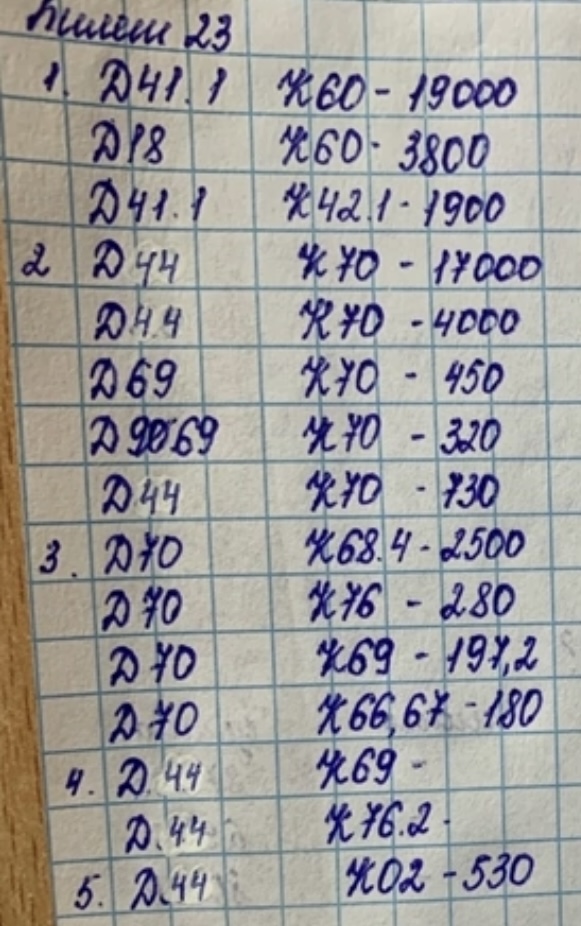 Билет 23
1. Д41.1 К60 - 19000
Д18 К60 - 3800
Д41.1 К42.1 - 1900
2 Д44 К70 - 17000
Д44 К70 - 4000
Д69 К70 - 450
Д9069 К70 - 320
Д44 К70 - 730
3. Д70 К68.4 - 2500
Д70 К76 - 280
Д70 К69 - 197,2
Д70 К66,67 - 180
4. Д.44 К69 -
Д.44 К76.2 -
5. Д.44 К02 - 530